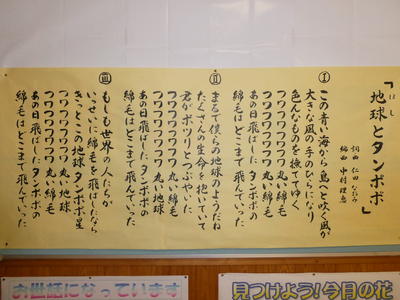 「地球とタンポポ」
ほし
詞曲 仁田
編曲 中村
Ⅰ
この青い海から島へと吹く風が
大きな風の手のひらになり
色んなものを撫でてゆく
フワフワフワフワ 丸い綿毛
フワフワフワフワ 丸い地球
あの日飛ばしたタンポポの
綿毛はどこまで飛んでいった
Ⅱ
まるで僕らの地球のようだね
たくさんの生命を抱いていて
君がポツリとつぶやいた
フワフワフワフワ 丸い綿毛
フワフワフワフワ 丸い地球
あの日飛ばしたタンポポの
綿毛はどこまで飛んでいった
Ⅲ
もしも世界の人たちが
いっせいに綿毛を飛ばしたなら
きっとこの地球 タンポポ星
フワフワフワフワ 丸い綿毛
フワフワフワフワ 丸い地球
あの日飛ばした タンポポの
綿毛はどこまで飛んでいった
お世話になっています
見つけよう!今日の花